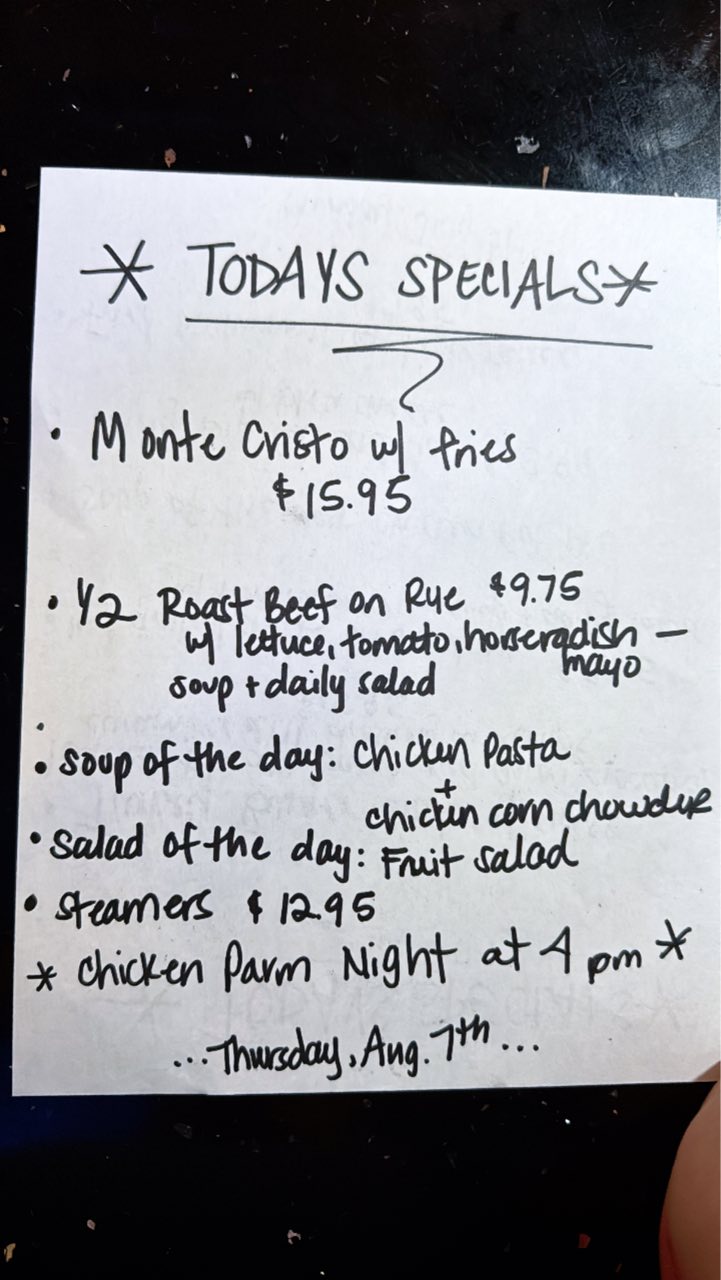 * TODAYS SPECIALS *
• Monte Cristo w/ fries
$15.95
• 1/2 Roast Beef on Rye $9.75
w/ lettuce, tomato, horseradish —
mayo
soup + daily salad
• soup of the day: Chicken Pasta
+
chicken corn chowder
• Salad of the day: Fruit salad
• Steamers $12.95
* Chicken Parm Night at 4 pm *
...Thursday, Aug. 7th...